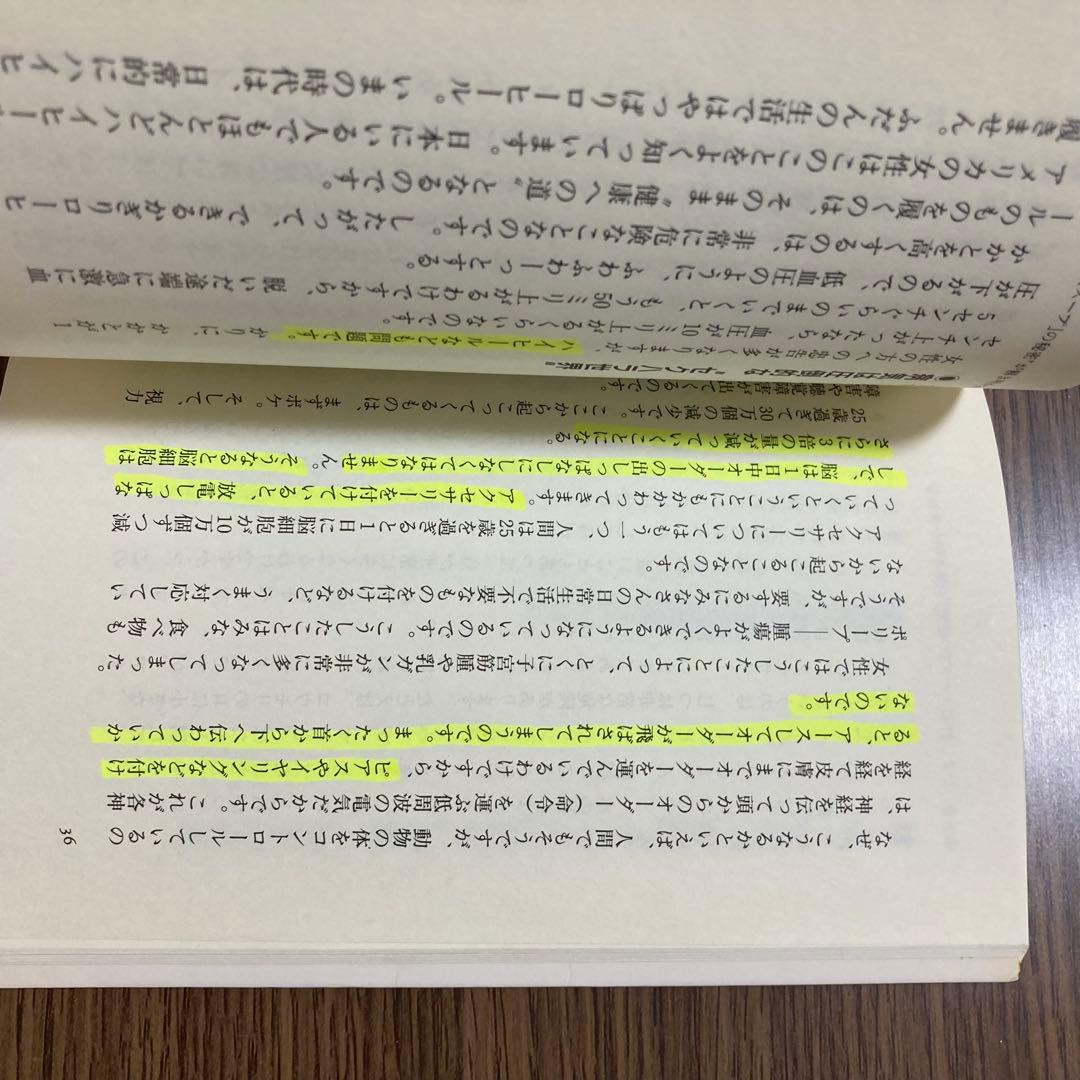 36
なぜ、こうなるかといえば、人間でもそうですが、動物の体をコントロールしているの
は、神経を伝って頭からのオーダー（命令）を運ぶ低周波の電気だからです。これが各神
経を経て皮膚にまでオーダーを運んでいるわけですから、ピアスやイヤリングなどを付け
ると、アースしてオーダーが飛ばされてしまうのです。まったく首から下へ伝わっていか
ないのです。
女性ではこうしたことによって、とくに子宮筋腫や乳ガンが非常に多くなってしまった。
ポリープ――腫瘍がよくできるようになっているのです。こうしたことはみな、食べ物も
そうですが、要するにみなさんの日常生活で不要なものを付けるなど、うまく対応してい
ないから起こることなのです。
アクセサリーについてはもう一つ、人間は25歳を過ぎると1日に脳細胞が10万個ずつ減
っていくということにもかかわってきます。アクセサリーを付けていると、放電しっぱな
しで、脳は1日中オーダーの出しっぱなしにしなくてはなりません。そうなると脳細胞は
さらに3倍の量が減っていくことになる。
25歳過ぎて30万個の減少です。ここから起こってくるものは、まずボケ。そして、視力
障害や聴覚障害が出てくるのです。
女性の方への忠告が多くなりますが、ハイヒールなども問題です。かりに、かかとが1
センチ上がったなら、血圧が10ミリ上がるくらいなのです。
5センチぐらいのまでいくと、もう50ミリ上がるわけですから、脱いだ途端に急激に血
圧が下がるので、低血圧のように、ふわふわーっとする。
かかとを高くするのは、非常に危険なことなのです。したがって、できるかぎりローヒ
ールのものを履くのは、そのまま〝健康への道〟となるのです。
アメリカの女性はこのことをよく知っています。日本にいる人でもほとんどハイヒー
履きません。ふだんの生活ではやっぱりローヒール。いまの時代は、日常的にハイヒ